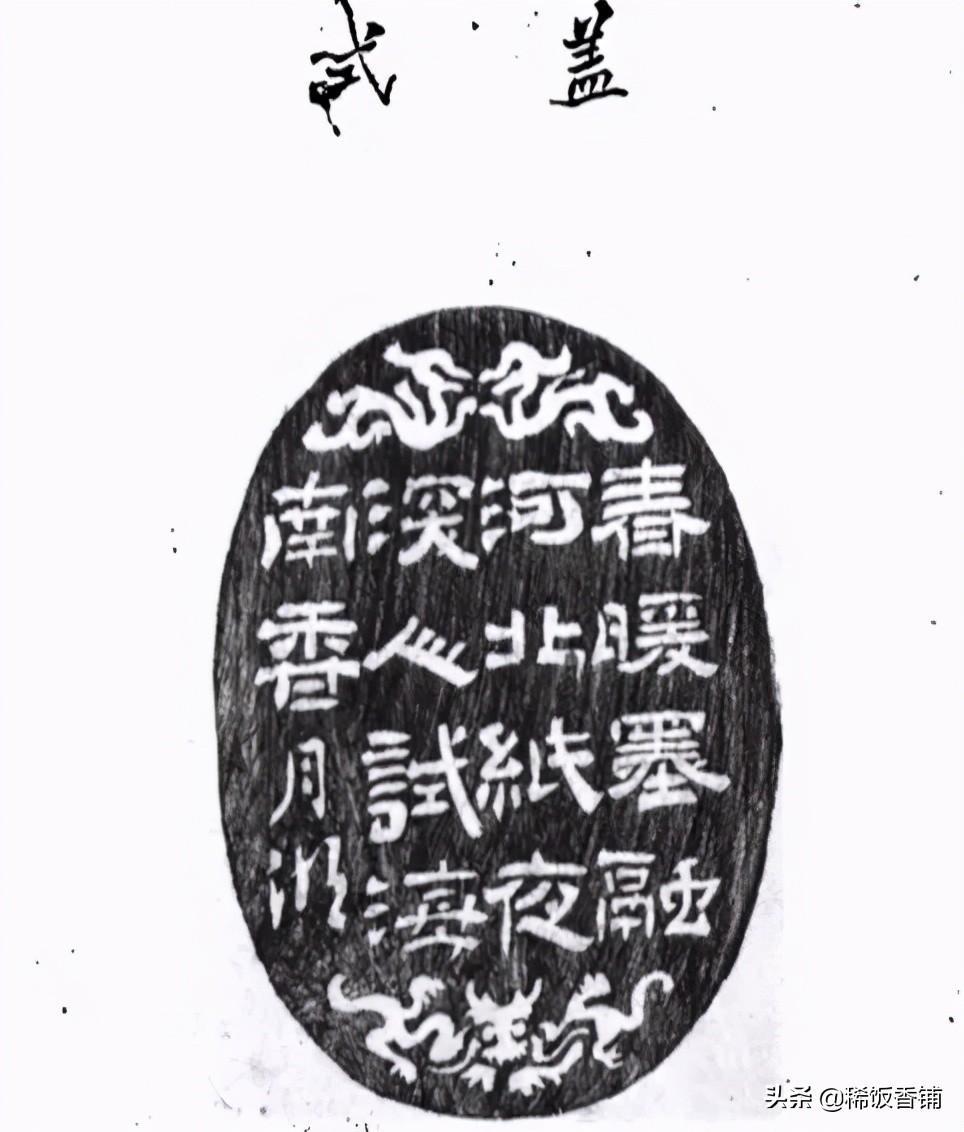 盖式
春暖墨融
河北紙夜
深心試海
南香月
头条 @稀饭香铺